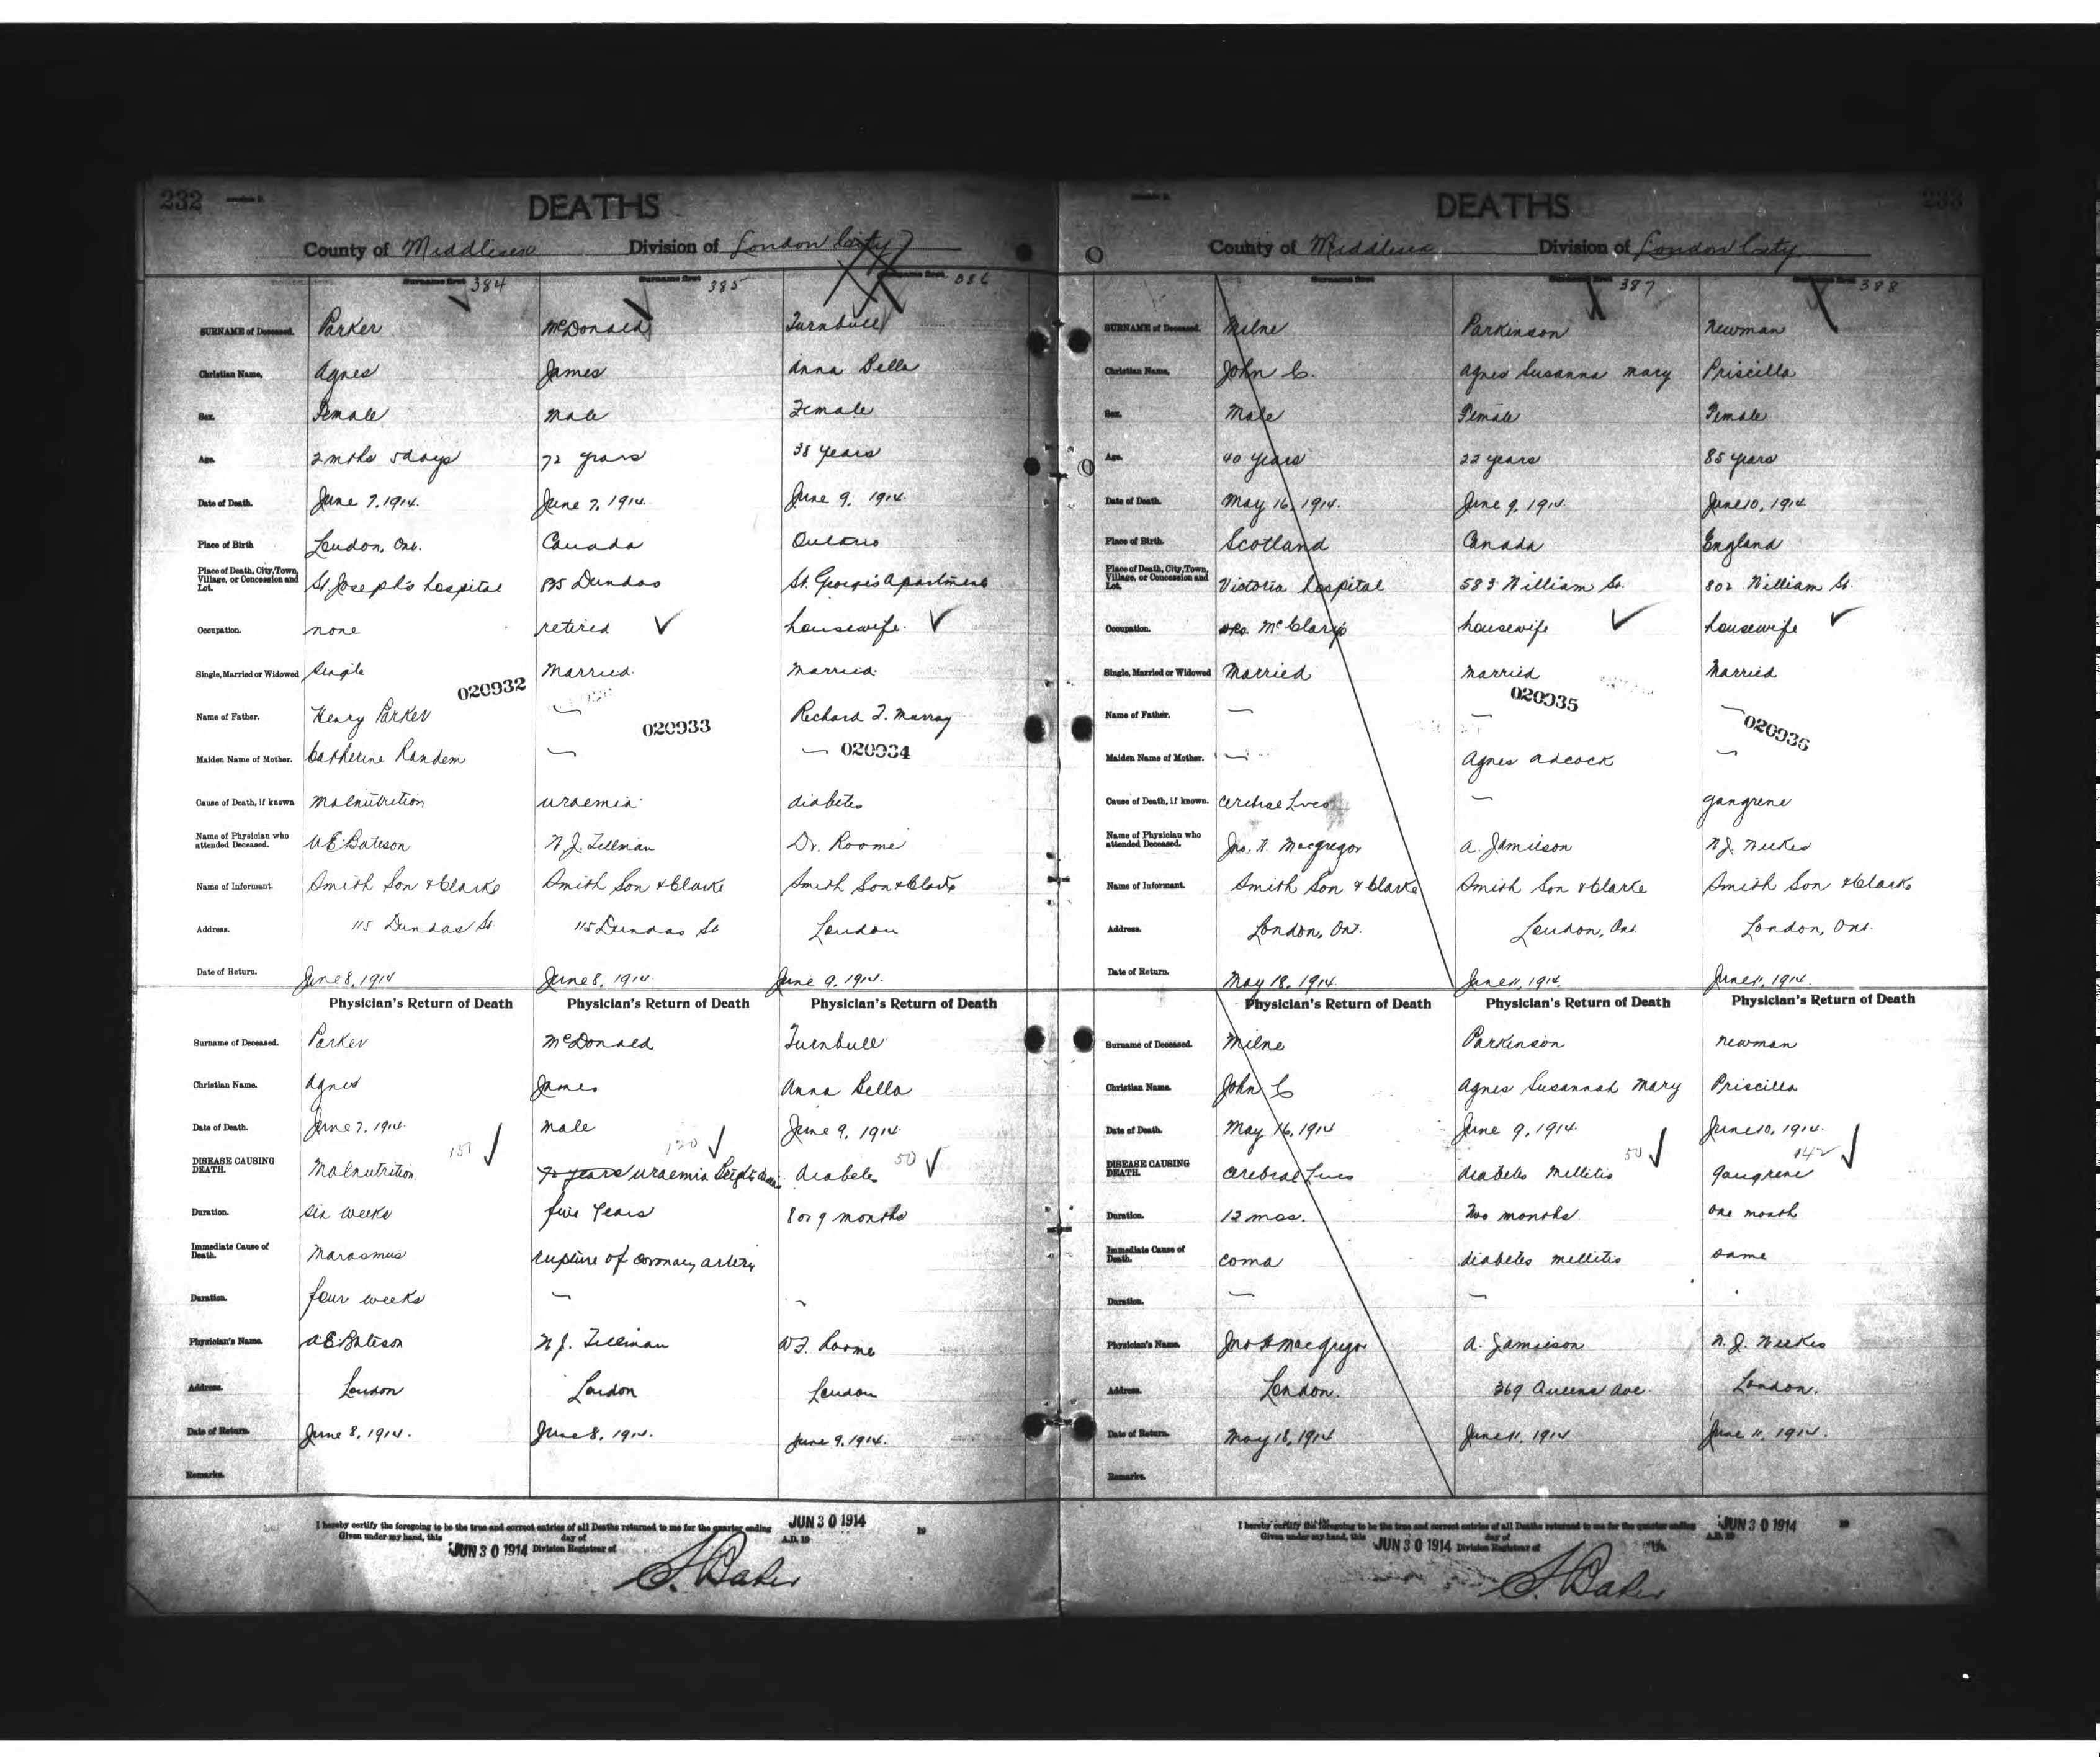 232
DEATHS
County of Middlesex Division of London City
Surname first 384 Surname first 385 Surname first 386
SURNAME of Deceased. Parker McDonald Turnbull
Christian Name. Agnes James Anna Bella
Sex. Female Male Female
Age. 2 mths 5 days 72 years 38 years
Date of Death. June 7, 1914. June 7, 1914. June 9, 1914.
Place of Birth London, Ont. Canada Ontario
Place of Death, City, Town, Village, or Concession and Lot. St Joseph's hospital 825 Dundas St. George's apartments
Occupation. none retired housewife.
Single, Married or Widowed Single Married. Married.
020932
Name of Father. Henry Parker — Richard T. Murray
020933
Maiden Name of Mother. Catherine Randem — — 020934
Cause of Death, if known Malnutrition uraemia diabetes
Name of Physician who attended Deceased. A E Bateson W. J. Tillman Dr. Roome
Name of Informant. Smith Son & Clarke Smith Son & Clarke Smith Son & Clarke
Address. 115 Dundas St 115 Dundas St London
Date of Return. June 8, 1914 June 8, 1914. June 9, 1914.
Physician's Return of Death Physician's Return of Death Physician's Return of Death
Surname of Deceased. Parker McDonald Turnbull
Christian Name. Agnes James Anna Bella
Date of Death. June 7, 1914. male June 9, 1914.
151 120 50
DISEASE CAUSING DEATH. Malnutrition 72 years uraemia diabetes
Duration. six weeks five years 8 or 9 months
Immediate Cause of Death. Marasmus rupture of coronary artery
Duration. four weeks — -
Physician's Name. A E Bateson W. J. Tillman W F. Roome
Address. London London London
Date of Return. June 8, 1914. June 8, 1914. June 9, 1914.
Remarks.
I hereby certify the foregoing to be the true and correct entries of all Deaths returned to me for the quarter ending JUN 30 1914 19
Given under my hand, this day of A.D. 19
JUN 30 1914 Division Registrar of
S. Baker
233
DEATHS
County of Middlesex Division of London City
Surname first 387 388
SURNAME of Deceased. Milne Parkinson Newman
Christian Name. John C. Agnes Susanna Mary Priscilla
Sex. Male Female Female
Age. 40 years 22 years 85 years
Date of Death. May 16, 1914. June 9, 1914. June 10, 1914.
Place of Birth. Scotland Canada England
Place of Death, City, Town, Village, or Concession and Lot. Victoria hospital 583 William St. 802 William St.
Occupation. McClary's housewife housewife
Single, Married or Widowed Married Married Married
020935
Name of Father. — — —
020936
Maiden Name of Mother. — Agnes Adcock —
Cause of Death, if known. Cerebral Lues — gangrene
Name of Physician who attended Deceased. Jno. H. Macgregor A. Jamieson W J. Weekes
Name of Informant. Smith Son & Clarke Smith Son & Clarke Smith Son & Clarke
Address. London, Ont. London, Ont. London, Ont.
Date of Return. May 18, 1914. June 11, 1914. June 11, 1914.
Physician's Return of Death Physician's Return of Death Physician's Return of Death
Surname of Deceased. Milne Parkinson Newman
Christian Name. John C Agnes Susannah Mary Priscilla
Date of Death. May 16, 1914 June 9, 1914. June 10, 1914.
50 142
DISEASE CAUSING DEATH. Cerebral Lues diabetes mellitis gangrene
Duration. 12 mos. Two months. one month
Immediate Cause of Death. coma diabetes mellitis same
Duration. — —
Physician's Name. Jno H Macgregor A. Jamieson W. J. Weekes
Address. London. 369 Queens Ave. London.
Date of Return. May 18, 1914 June 11, 1914 June 11, 1914.
Remarks.
I hereby certify the foregoing to be the true and correct entries of all Deaths returned to me for the quarter ending JUN 30 1914 19
Given under my hand, this day of A.D. 19
JUN 30 1914 Division Registrar of
S. Baker